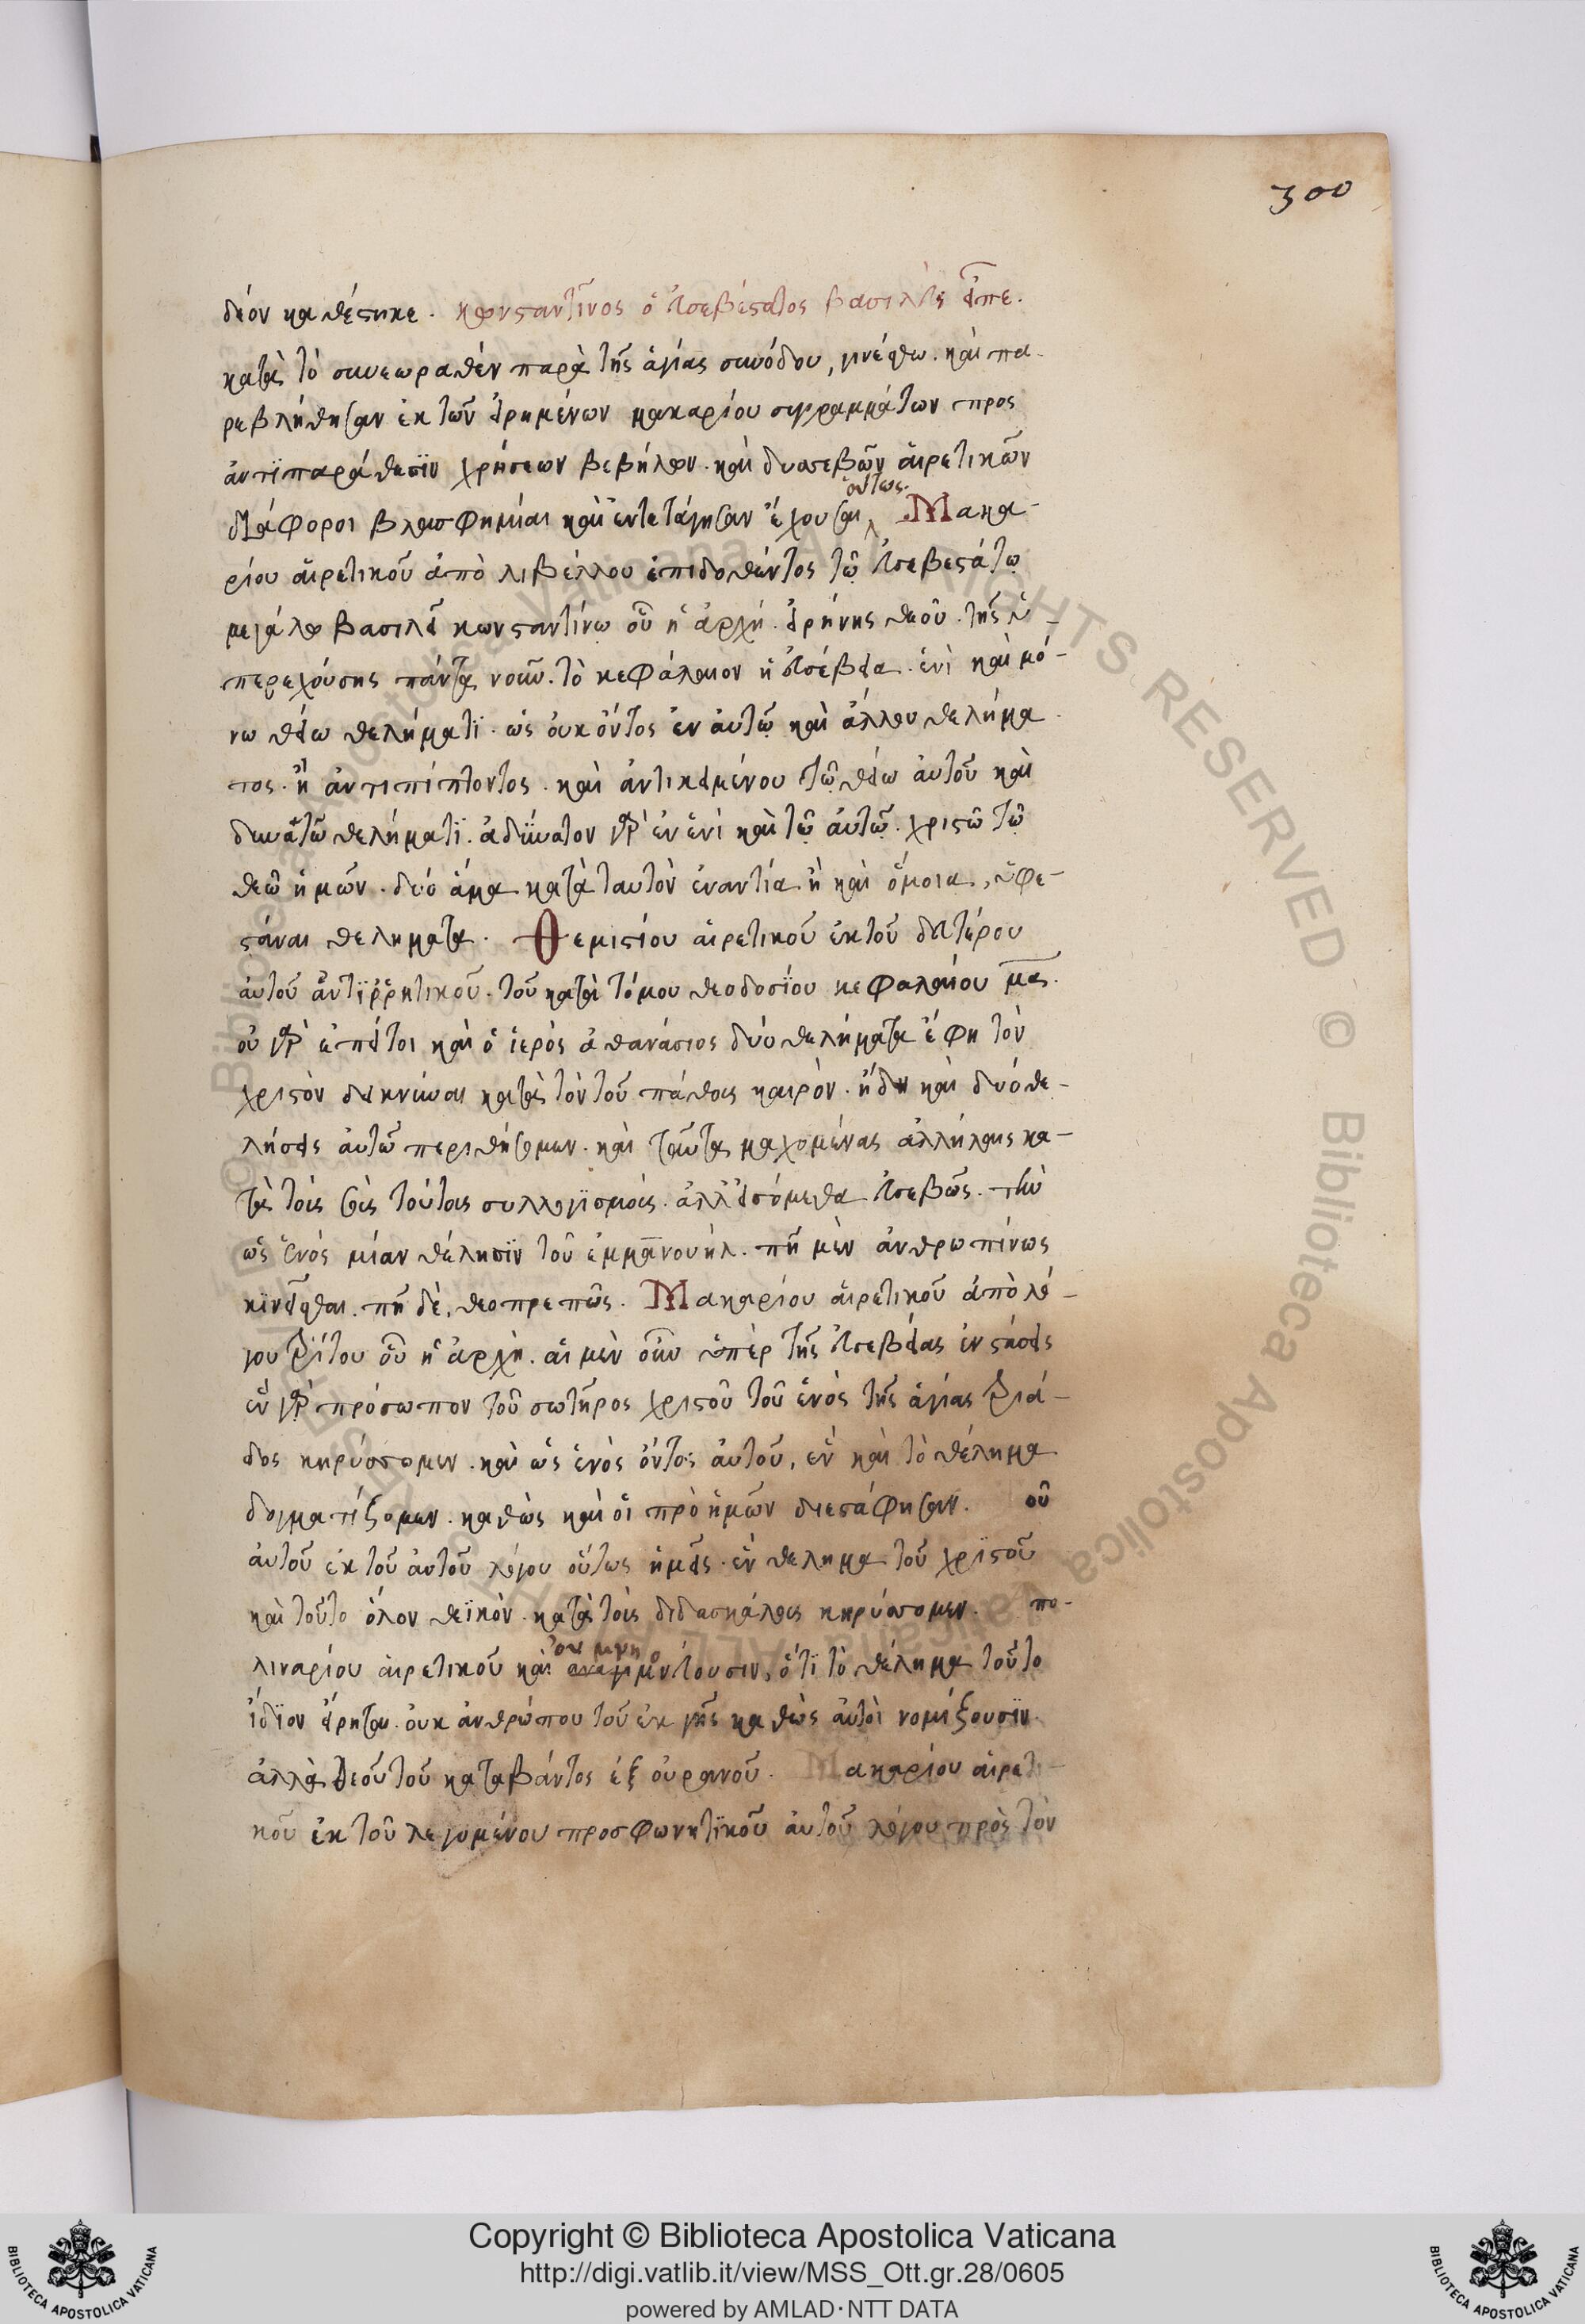 300
δέον καθέστηκε. κωνσταντῖνος ὁ εὐσεβέστατος βασιλεὺς εἶπε.
κατὰ τὸ συνεωραθὲν παρὰ τῆς ἁγίας συνόδου, γινέσθω. καὶ πα-
ρεβλήθησαν ἐκ τῶν εἰρημένων μακαρίου συγγραμμάτων προς
ἀντιπαράθεσϊν χρήσεων βεβήλων. καὶ δυσεβῶν αἱρετικῶν
διάφοροι βλασφημίαι καὶ ἐντετάγησαν ἔχουσαι οὕτως. Μακα-
ρίου αἱρετικοῦ ἀπὸ λιβέλλου ἐπιδοθέντος τῷ εὐσεβεστάτῳ
μεγάλω βασιλεῖ κωνσταντίνω οὗ ἡ ἀρχή. εἰρήνης θεοῦ. τῆς ὑ-
περεχούσης πάντα νοῦν. τὸ κεφάλαιον ἡ εὐσέβεια. ἑνὶ καὶ μό-
νω θείω θελήματϊ. ὡς οὐκ ὄντος ἐν αὐτῷ καὶ ἄλλου θελήμα
τος. ἢ ἀντιπίπτοντος. καὶ ἀντικειμένου τῷ θείω αὐτοῦ καὶ
δυνατῶ θελήματϊ. ἀδύνατον γὰρ ἐν ἑνὶ καὶ τῷ αὐτῷ. χριστῶ τῷ
θεῶ ἡμῶν. δύο ἅμα κατὰ ταυτὸν ἐναντία ἢ καὶ ὅμοια, ὑφε-
στάναι θεληματα. Θεμιστίου αἱρετικοῦ ἐκ τοῦ δευτέρου
αὐτοῦ ἀντϊρρητικοῦ. τοῦ κατὰ τόμου θεοδοσίου κεφαλαίου μας.
οὐ γὰρ ἐπείτοι καὶ ὁ ἱερὸς ἀθανάσιος δύο θελήματα ἔφη τὸν
χριστὸν δεικνύναι κατὰ τὸν τοῦ πάθους καιρὸν. ἤδη καὶ δυό θε-
λήσεις αὐτῶ περιθήσομεν. καὶ ταῦτας μαχομένας ἀλλήλαις κα-
τὰ τοὺς σοὺς τούτους συλλογισμοὺς. ἀλλ' εἰσόμεθα εὐσεβῶς. τὴν
ὡς ἑνὸς μίαν θέλησϊν τοῦ ἐμμανουὴλ. πῆ μὲν ἀνθρωπίνως
κϊνεῖσθαι. πῆ δὲ, θεοπρεπῶς. Μακαρίου αἱρετικοῦ ἀπὸ λό-
γου τρίτου οὗ ἡ ἀρχὴ. αἱ μὲν οὖν ὑπὲρ τῆς εὐσεβείας ἐνστάσεις
ἓν γὰρ πρόσωπον τοῦ σωτῆρος χριστοῦ τοῦ ἑνὸς τῆς ἁγίας τριά-
δος κηρύσσομεν. καὶ ὡς ἑνὸς ὄντος αὐτοῦ, ἓν καὶ τὸ θέλημα
δογματίζομεν. καθὼς καὶ οἱ πρὸ ἡμῶν διεσάφησαν. οῦ
αὐτοῦ ἐκ τοῦ αὐτοῦ λόγου οὕτως ἡμεῖς. ἓν θελημα τοῦ χρϊστοῦ
καὶ τοῦτο ὅλον θεϊκὸν. κατὰ τοὺς διδασκάλους κηρύσσομεν. πο-
λιναρίου αἱρετικοῦ καὶ οὐ μνημονεύουσιν, ὅτϊ τὸ θέλημα τοῦτο
ἴδϊον εἴρηται. οὐκ ἀνθρώπου τοῦ ἐκ γῆς καθὼς αὐτοὶ νομίζουσϊν.
ἀλλὰ θεοῦ τοῦ καταβάντος ἐξ οὐρανοῦ. Μακαρίου αἱρετι-
κοῦ ἐκ τοῦ λεγομένου προσφωνητϊκοῦ αὐτοῦ λόγου πρὸς τὸν
Copyright © Biblioteca Apostolica Vaticana
http://digi.vatlib.it/view/MSS_Ott.gr.28/0605
powered by AMLAD·NTT DATA